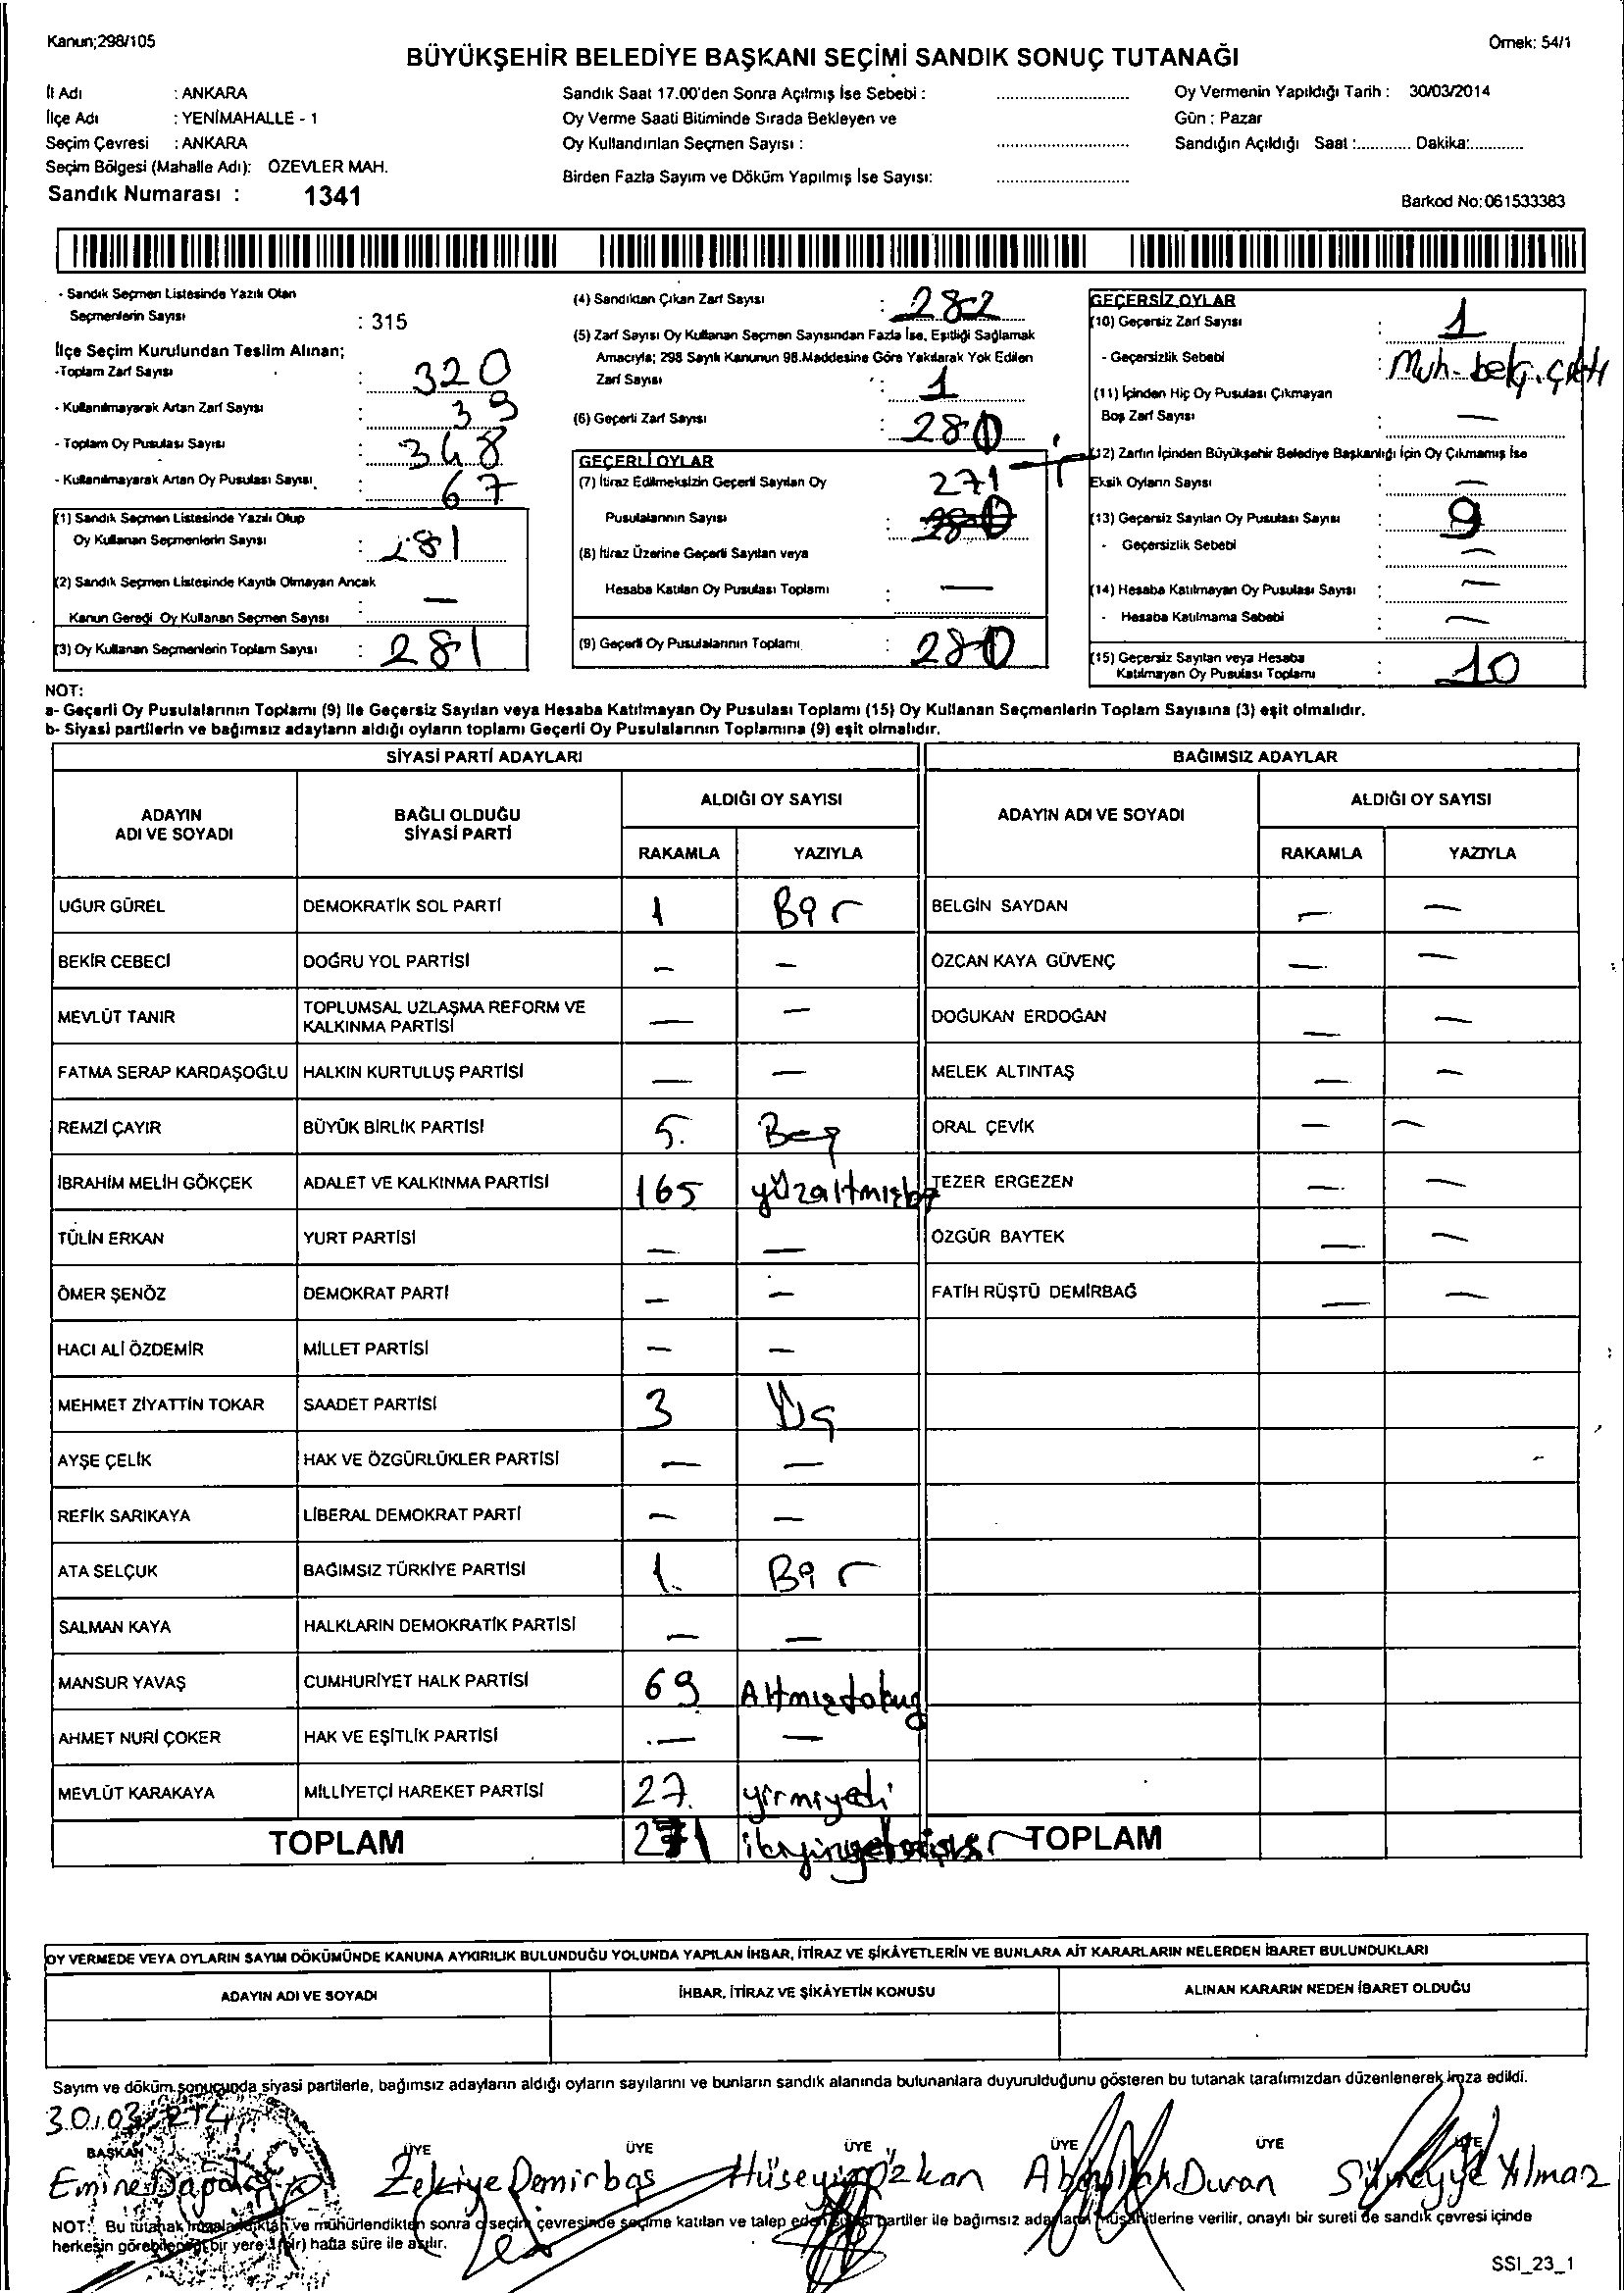 Kanun;298/105
Örnek: 54/1
BÜYÜKŞEHİR BELEDİYE BAŞKANI SEÇİMİ SANDIK SONUÇ TUTANAĞI
İl Adı : ANKARA
İlçe Adı : YENİMAHALLE - 1
Seçim Çevresi : ANKARA
Seçim Bölgesi (Mahalle Adı): ÖZEVLER MAH.
Sandık Numarası : 1341
Sandık Saat 17.00'den Sonra Açılmış İse Sebebi :
Oy Verme Saati Bitiminde Sırada Bekleyen ve
Oy Kullandırılan Seçmen Sayısı :
Birden Fazla Sayım ve Döküm Yapılmış İse Sayısı:
Oy Vermenin Yapıldığı Tarih : 30/03/2014
Gün : Pazar
Sandığın Açıldığı Saat :............ Dakika:............
Barkod No:061533383
- Sandık Seçmen Listesinde Yazılı Olan
Seçmenlerin Sayısı : 315
İlçe Seçim Kurulundan Teslim Alınan;
-Toplam Zarf Sayısı : 320
- Kullanılmayarak Artan Zarf Sayısı : 39
- Toplam Oy Pusulası Sayısı : 348
- Kullanılmayarak Artan Oy Pusulası Sayısı : 67
(1) Sandık Seçmen Listesinde Yazılı Olup
Oy Kullanan Seçmenlerin Sayısı : 281
(2) Sandık Seçmen Listesinde Kayıtlı Olmayan Ancak
Kanun Gereği Oy Kullanan Seçmen Sayısı : —
(3) Oy Kullanan Seçmenlerin Toplam Sayısı : 281
(4) Sandıktan Çıkan Zarf Sayısı : 282
(5) Zarf Sayısı Oy Kullanan Seçmen Sayısından Fazla İse, Eşitliği Sağlamak
Amacıyla; 298 Sayılı Kanunun 98.Maddesine Göre Yakılarak Yok Edilen
Zarf Sayısı : 1
(6) Geçerli Zarf Sayısı : 280
GEÇERLİ OYLAR
(7) İtiraz Edilmeksizin Geçerli Sayılan Oy 271
Pusulalarının Sayısı : 280
(8) İtiraz Üzerine Geçerli Sayılan veya
Hesaba Katılan Oy Pusulası Toplamı : —
(9) Geçerli Oy Pusulalarının Toplamı : 280
GEÇERSİZ OYLAR
(10) Geçersiz Zarf Sayısı : 1
- Geçersizlik Sebebi : Muh. belg. çıktı
(11) İçinden Hiç Oy Pusulası Çıkmayan
Boş Zarf Sayısı : —
(12) Zarfın İçinden Büyükşehir Belediye Başkanlığı İçin Oy Çıkmamış İse
Eksik Oyların Sayısı : —
(13) Geçersiz Sayılan Oy Pusulası Sayısı : 9
- Geçersizlik Sebebi : —
(14) Hesaba Katılmayan Oy Pusulası Sayısı : —
- Hesaba Katılmama Sebebi : —
(15) Geçersiz Sayılan veya Hesaba
Katılmayan Oy Pusulası Toplamı : 10
NOT:
a- Geçerli Oy Pusulalarının Toplamı (9) İle Geçersiz Sayılan veya Hesaba Katılmayan Oy Pusulası Toplamı (15) Oy Kullanan Seçmenlerin Toplam Sayısına (3) eşit olmalıdır.
b- Siyasi partilerin ve bağımsız adayların aldığı oyların toplamı Geçerli Oy Pusulalarının Toplamına (9) eşit olmalıdır.
SİYASİ PARTİ ADAYLARI BAĞIMSIZ ADAYLAR
ADAYIN ADI VE SOYADI
BAĞLI OLDUĞU SİYASİ PARTİ
ALDIĞI OY SAYISI
RAKAMLA YAZIYLA
ADAYIN ADI VE SOYADI
ALDIĞI OY SAYISI
RAKAMLA YAZIYLA
UĞUR GÜREL DEMOKRATİK SOL PARTİ 1 Bir BELGİN SAYDAN — —
BEKİR CEBECİ DOĞRU YOL PARTİSİ — — ÖZCAN KAYA GÜVENÇ — —
MEVLÜT TANIR TOPLUMSAL UZLAŞMA REFORM VE KALKINMA PARTİSİ — — DOĞUKAN ERDOĞAN — —
FATMA SERAP KARDAŞOĞLU HALKIN KURTULUŞ PARTİSİ — — MELEK ALTINTAŞ — —
REMZİ ÇAYIR BÜYÜK BİRLİK PARTİSİ 5. Beş ORAL ÇEVİK — —
İBRAHİM MELİH GÖKÇEK ADALET VE KALKINMA PARTİSİ 165 yüzaltmışbş TEZER ERGEZEN — —
TÜLİN ERKAN YURT PARTİSİ — — ÖZGÜR BAYTEK — —
ÖMER ŞENÖZ DEMOKRAT PARTİ — — FATİH RÜŞTÜ DEMİRBAĞ — —
HACI ALİ ÖZDEMİR MİLLET PARTİSİ — —
MEHMET ZİYATTİN TOKAR SAADET PARTİSİ 3 Üç
AYŞE ÇELİK HAK VE ÖZGÜRLÜKLER PARTİSİ — —
REFİK SARIKAYA LİBERAL DEMOKRAT PARTİ — —
ATA SELÇUK BAĞIMSIZ TÜRKİYE PARTİSİ 1. Bir
SALMAN KAYA HALKLARIN DEMOKRATİK PARTİSİ — —
MANSUR YAVAŞ CUMHURİYET HALK PARTİSİ 69 Altmışdokuz
AHMET NURİ ÇOKER HAK VE EŞİTLİK PARTİSİ — —
MEVLÜT KARAKAYA MİLLİYETÇİ HAREKET PARTİSİ 27. yirmiyedi
TOPLAM 271 TOPLAM
OY VERMEDE VEYA OYLARIN SAYIM DÖKÜMÜNDE KANUNA AYKIRILIK BULUNDUĞU YOLUNDA YAPILAN İHBAR, İTİRAZ VE ŞİKÂYETLERİN VE BUNLARA AİT KARARLARIN NELERDEN İBARET BULUNDUKLARI
ADAYIN ADI VE SOYADI İHBAR, İTİRAZ VE ŞİKÂYETİN KONUSU ALINAN KARARIN NEDEN İBARET OLDUĞU
Sayım ve döküm sonucunda siyasi partilerle, bağımsız adayların aldığı oyların sayılarını ve bunların sandık alanında bulunanlara duyurulduğunu gösteren bu tutanak tarafımızdan düzenlenerek imza edildi.
30.03.
BAŞKAN ÜYE ÜYE ÜYE ÜYE ÜYE ÜYE
Emine Zekiye Demirbaş Hüseyin Özkan Abdullah Duran Sümeyye Yılmaz
NOT: Bu tutanak imzalandıktan ve mühürlendikten sonra o seçim çevresinde seçime katılan ve talep eden siyasi partiler ile bağımsız adayların müşahitlerine verilir, onaylı bir sureti de sandık çevresi içinde
herkesin görebileceği bir yere 1(bir) hafta süre ile asılır.
SSI_23_1